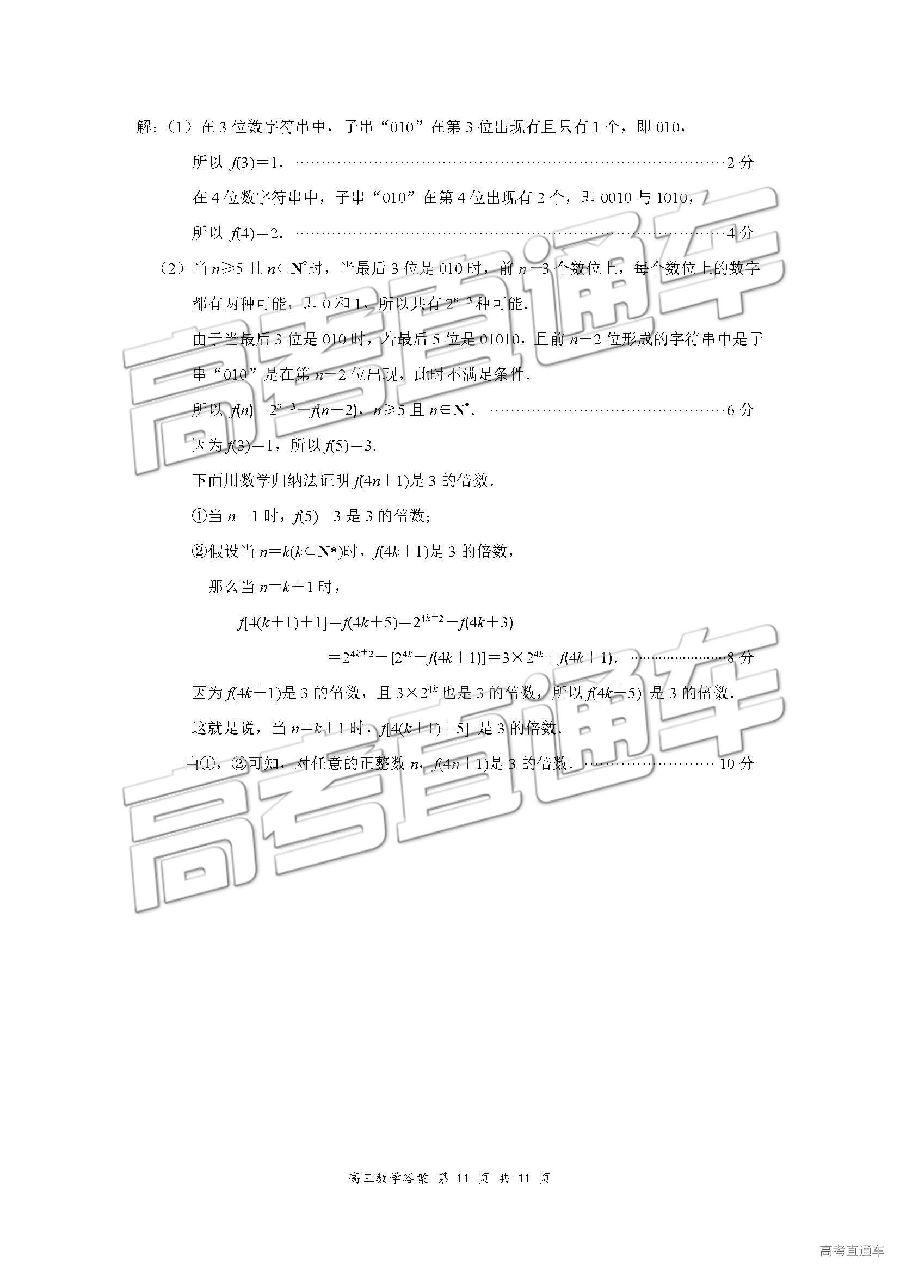 解:(1)在3位数字符串中,子串“010”在第3位出现有且只有1个,即010,
所以 f(3)=1. ……………………………………………………………………2分
在4位数字符串中,子串“010”在第4位出现有2个,即0010与1010,
所以 f(4)=2. ……………………………………………………………………4分
(2)当n≥5且n∈N*时,当最后3位是010时,前n-3个数位上,每个数位上的数字
都有两种可能,即0和1,所以共有2ⁿ⁻³种可能.
由于当最后3位是010时,若最后5位是01010,且前n-2位形成的字符串中是子
串“010”是在第n-2位出现,此时不满足条件.
所以 f(n)=2ⁿ⁻³-f(n-2),n≥5且n∈N*. ……………………………………6分
因为f(3)=1,所以f(5)=3.
下面用数学归纳法证明f(4n+1)是3的倍数.
①当n=1时,f(5)=3是3的倍数;
②假设当n=k(k∈N*)时,f(4k+1)是3的倍数,
那么当n=k+1时,
f[4(k+1)+1]=f(4k+5)=2⁴ᵏ⁺²-f(4k+3)
=2⁴ᵏ⁺²-[2⁴ᵏ-f(4k+1)]=3×2⁴ᵏ+f(4k+1). …………………8分
因为f(4k+1)是3的倍数,且3×2⁴ᵏ也是3的倍数,所以f(4k+5) 是3的倍数.
这就是说,当n=k+1时,f[4(k+1)+5] 是3的倍数.
由①,②可知,对任意的正整数n,f(4n+1)是3的倍数. …………………… 10分
高考直通车
高考直通车
高三数学答案 第 11 页 共 11 页
高考直通车